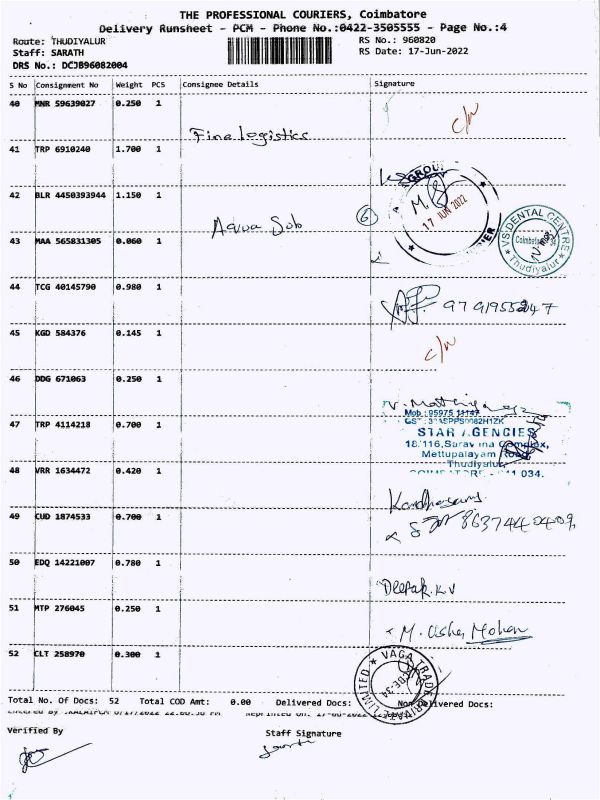 THE PROFESSIONAL COURIERS, Coimbatore
Delivery Runsheet - PCM - Phone No.:0422-3505555 - Page No.:4
Route: THUDIYALUR
RS No.: 960820
Staff: SARATH
RS Date: 17-Jun-2022
DRS No.: DCJB96082004
S No Consignment No Weight PCS Consignee Details Signature
40 MNR 59639027 0.250 1
c/n
Fine logistics
41 TRP 6910240 1.700 1
GROU
42 BLR 4450393944 1.150 1
17 JUN 2022
6
VS DENTAL CENTRE
Coimbatore-34
Thudiyalur
43 MAA 565831305 0.060 1
44 TCG 40145790 0.980 1
45 KGD 584376 0.145 1
c/n
46 DDG 671063 0.250 1
Mob : 95975
47 TRP 4114218 0.700 1
STAR AGENCIES
Mettupalayam Road,
Thudiyalur
034.
48 VRR 1634472 0.420 1
49 CUD 1874533 0.700 1
50 EDQ 14221007 0.780 1
Deepak.K.V
51 MTP 276045 0.250 1
M. Usha Mohan
52 CLT 258970 0.300 1
VAGA TRADE PRIVATE LIMITED
CBE-34
Total No. Of Docs: 52 Total COD Amt: 0.00 Delivered Docs: Non Delivered Docs:
Verified By
Staff Signature